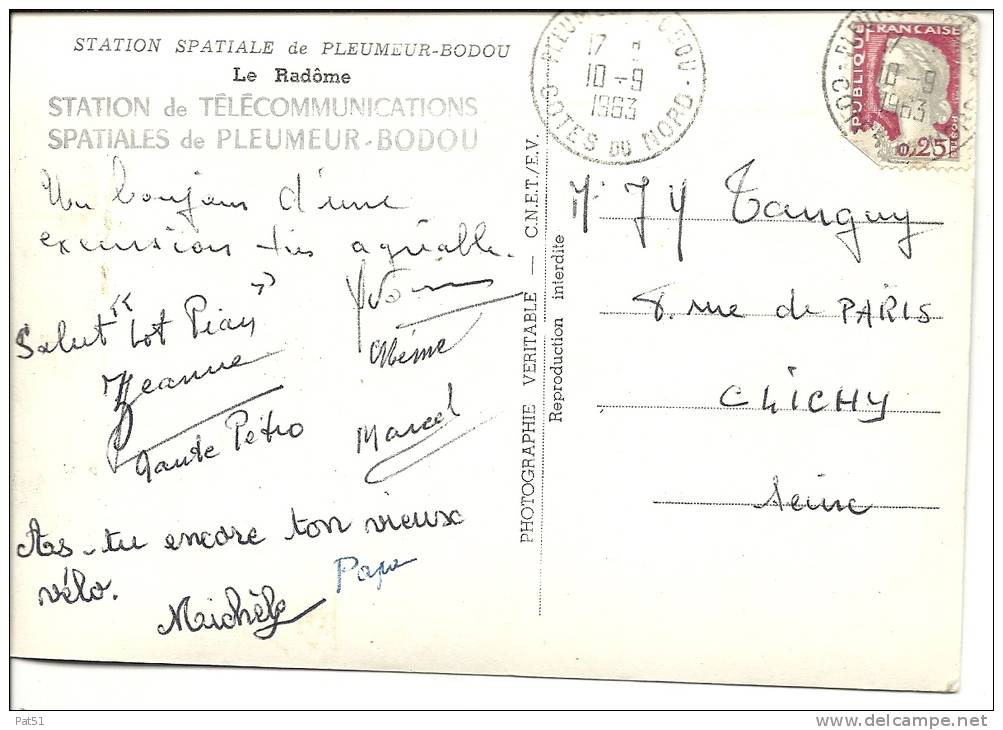 STATION SPATIALE de PLEUMEUR-BODOU
Le Radôme
STATION de TÉLÉCOMMUNICATIONS
SPATIALES de PLEUMEUR-BODOU
Un bonjour d'une
excursion très agréable.
Salut "Lot Piau"
Yvonne
Jeanne
Mémé
Tante Pétro
Marcel
As-tu encore ton vieux
vélo.
Papa
Michèle
PHOTOGRAPHIE VERITABLE — C.N.E.T./E.V.
Reproduction interdite
PLEUMEUR-BODOU
17
10-9
1963
COTES DU NORD
10-9
1963
REPUBLIQUE FRANÇAISE
0,25
POSTES
Mr J Y Tanguy
8. rue de PARIS
CLICHY
Seine
Pat51
delcampe.net